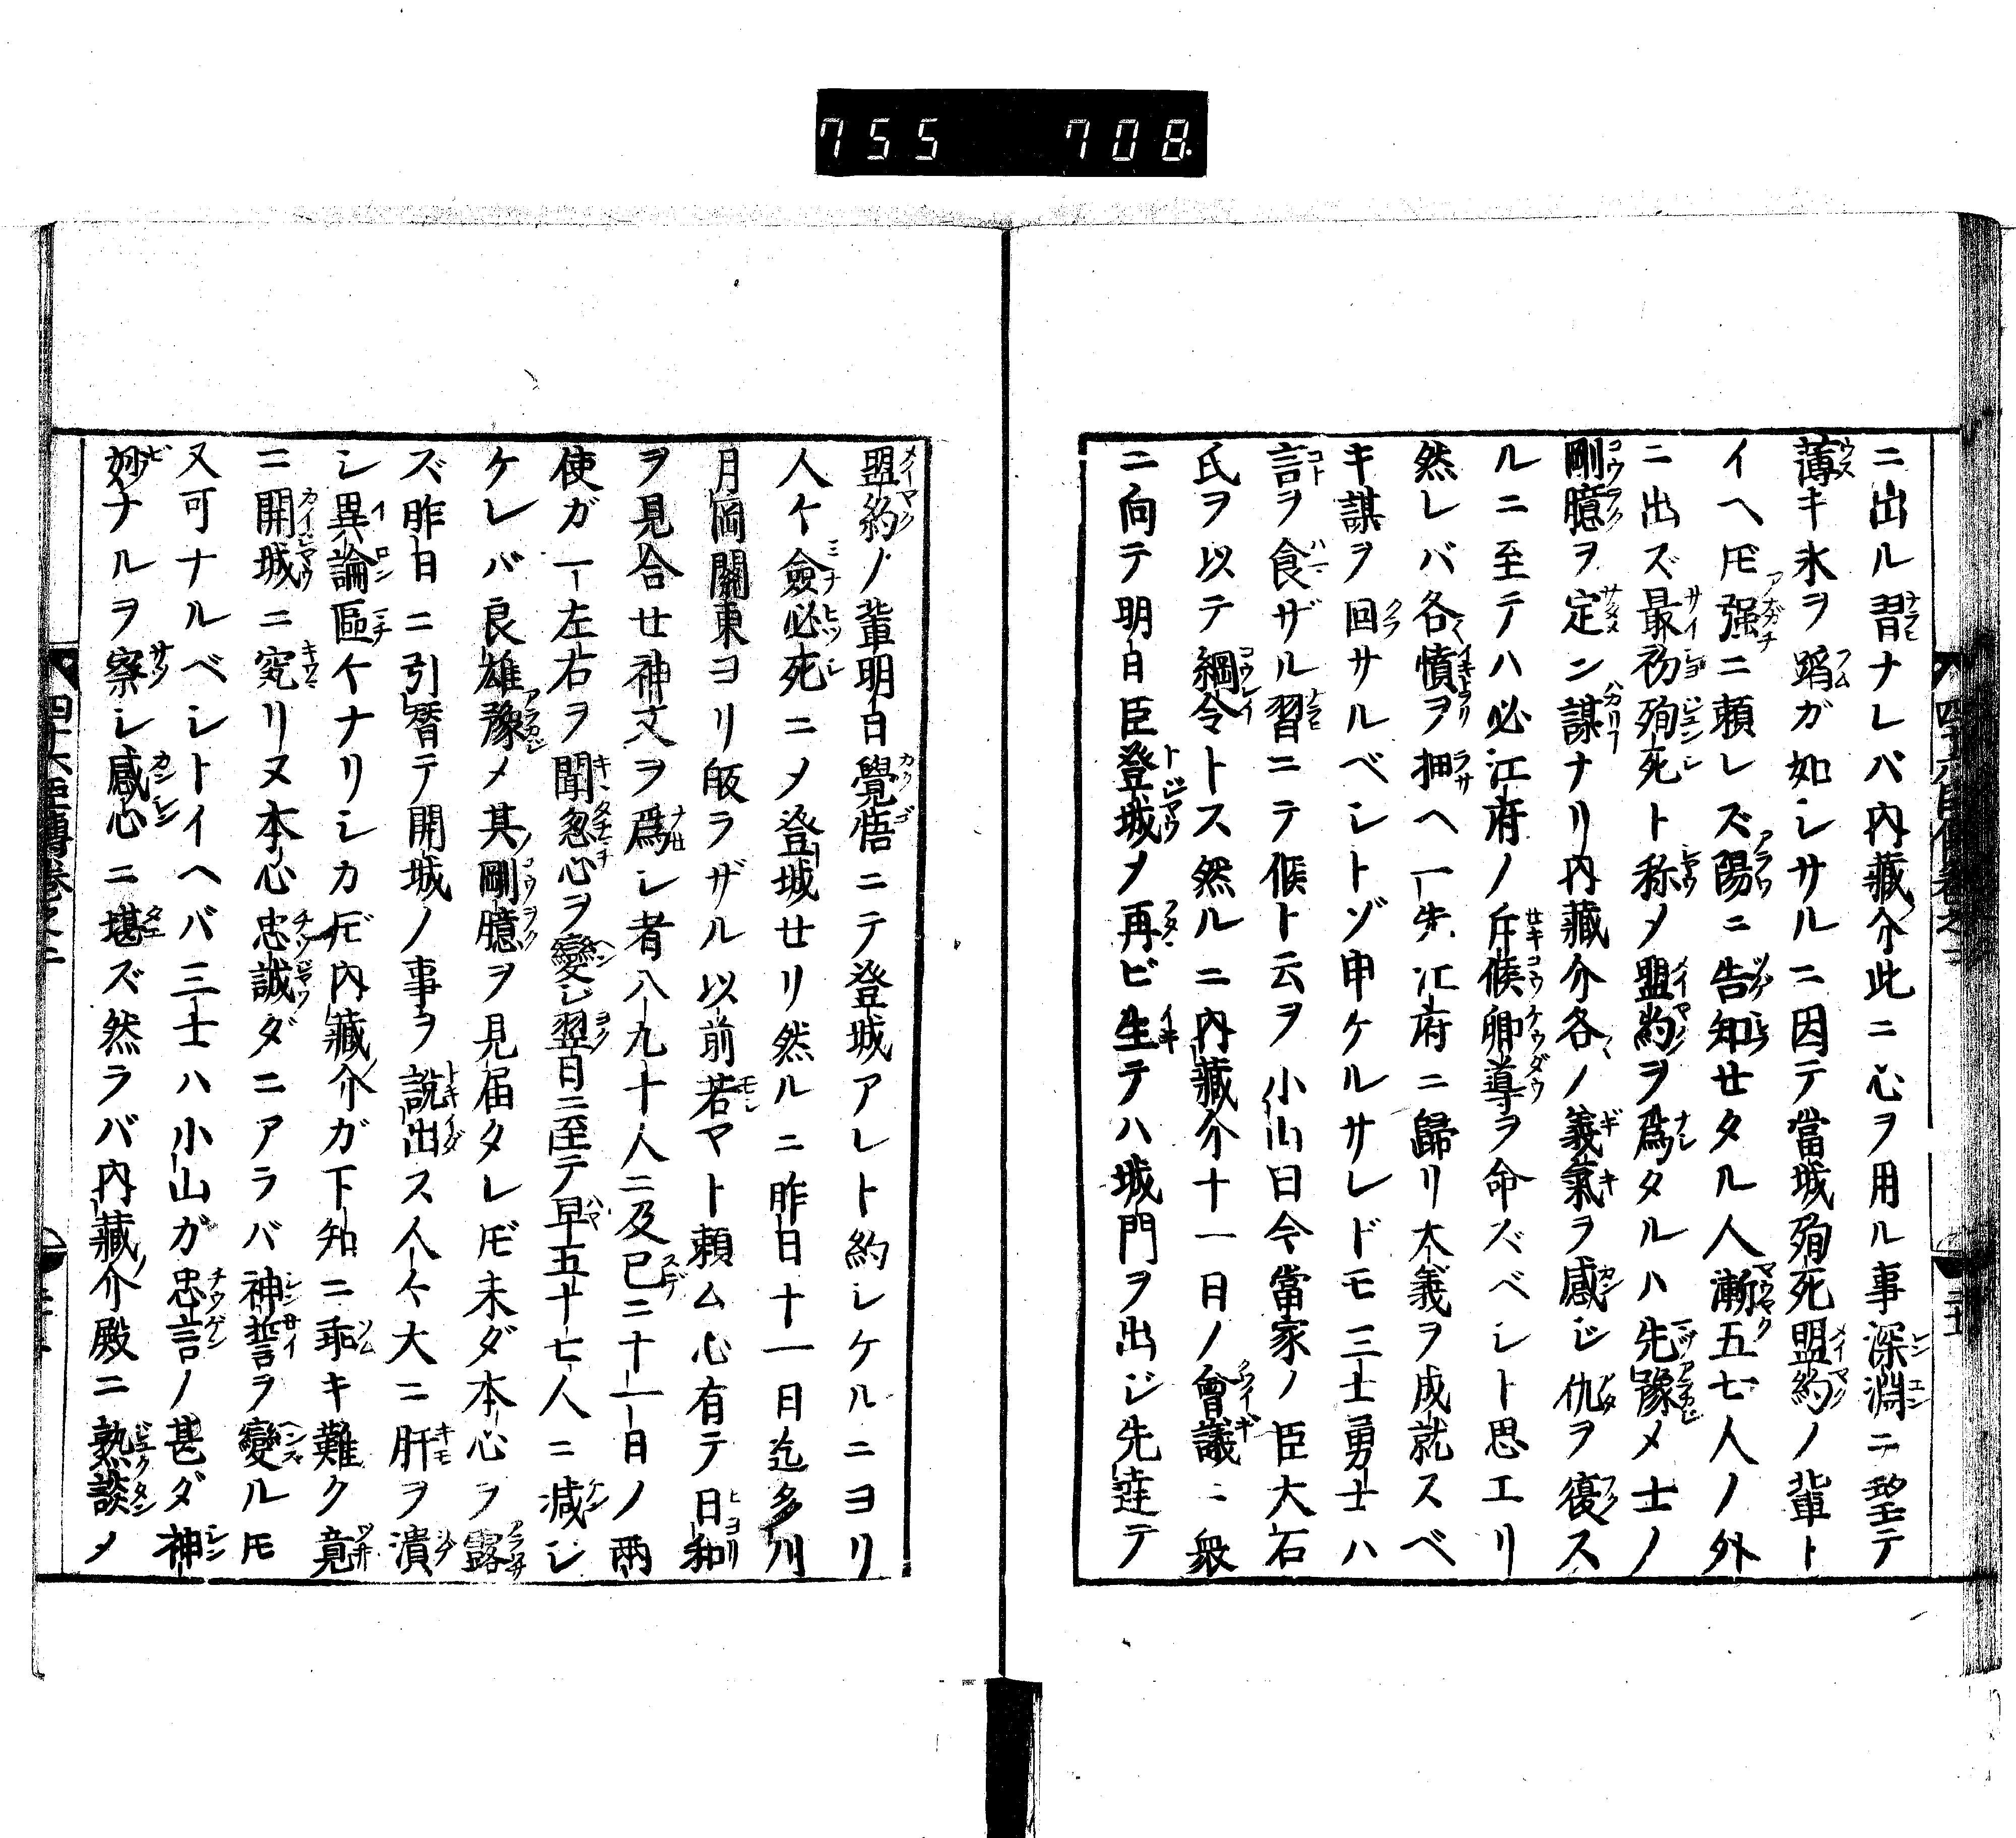 755 708
ニ出ル習ナレバ内藏介此ニ心ヲ用ル事深淵ニ望テ
薄キ氷ヲ蹈ガ如シサルニ因テ當城殉死盟約ノ輩ト
イヘ𪜈强ニ頼レズ陽ニ告知セタル人漸五七人ノ外
ニ出ズ最初殉死ト称メ盟約ヲ爲タルハ先豫メ士ノ
剛臆ヲ定ン謀ナリ内藏介各ノ義氣ヲ感ジ仇ヲ復ス
ルニ至テハ必江府ノ斥候郷導ヲ命ズベシト思エリ
然レバ各憤ヲ押ヘ一先江府ニ歸リ大義ヲ成就スベ
キ謀ヲ回サルベシトゾ申ケルサレドモ三士勇士ハ
言ヲ食ザル習ニテ候ト云ヲ小山曰今當家ノ臣大石
氏ヲ以テ綱令トス然ルニ内藏介十一日ノ會議ニ衆
ニ向テ明日臣登城メ再ビ生テハ城門ヲ出ジ先達テ
盟約ノ輩明日覺悟ニテ登城アレト約シケルニヨリ
人々僉必死ニメ登城セリ然ルニ昨日十一日迄多川
月岡關東ヨリ皈ラザル以前若マト頼ム心有テ日和
ヲ見合セ神文ヲ爲シ者八九十人ニ及已ニ十一日ノ兩
使ガ一左右ヲ聞忽心ヲ變ジ翌日ニ至テ早五十七人ニ減ジ
ケレバ良雄豫メ其剛臆ヲ見届タレ𪜈未ダ本心ヲ露
ズ昨日ニ引替テ開城ノ事ヲ說出ス人々大ニ肝ヲ潰
シ異論區々ナリシカ𪜈内藏介ガ下知ニ乖キ難ク竟
ニ開城ニ究リヌ本心忠誠ダニアラバ神誓ヲ變ルモ
又可ナルベシトイヘバ三士ハ小山ガ忠言ノ甚ダ神
妙ナルヲ察シ感心ニ堪ズ然ラバ内藏介殿ニ熟談メ
四十六臣傳卷之二